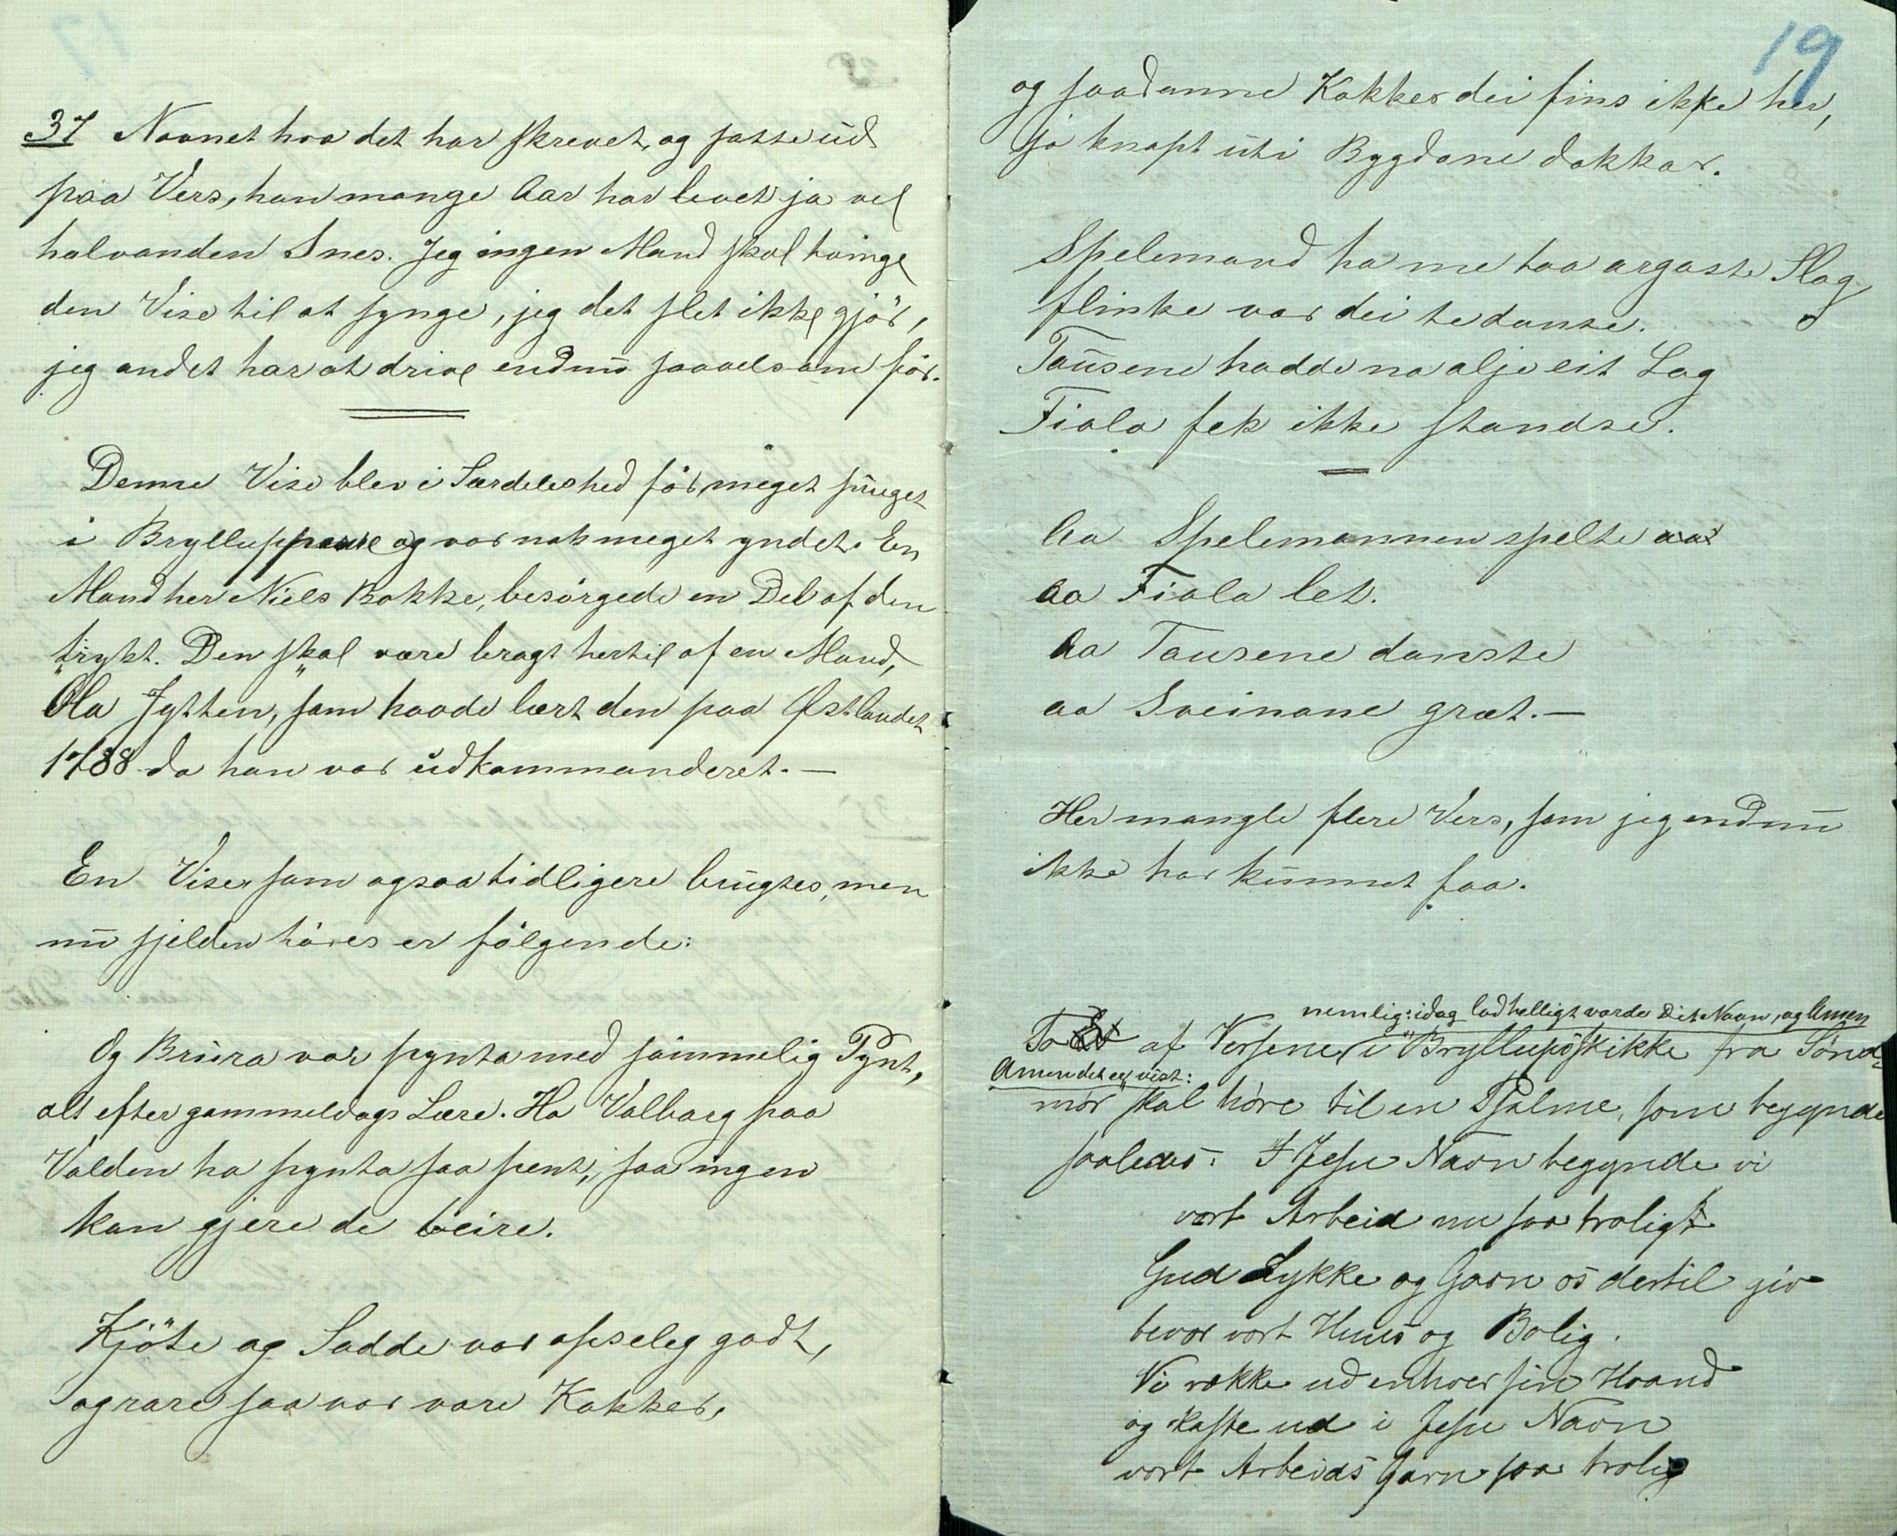 37 Navnet hva det har skrevet, og satte ud
paa Vers, han mange Aar har levet ja vel
halvanden Snes. Jeg ingen Mand skal tvinge
den Vise til at synge, jeg det slet ikke gjör,
jeg andet har at drive endnu saavelsom för.
Denne Vise blev i Særdeleshed för meget sunget
i Bryllupperne og var nok meget yndet. En
Mand her Niels Bakke, besörgede en Del af den
trykt. Den skal være bragt hertil af en Mand,
Ola Jytten, som havde lært den paa Østlandet
1788 da han var udkommanderet. —
En Vise som ogsaa tidligere brugtes, men
nu sjelden höres er fölgende:
Og Brura var pynta med sömmelig Pynt,
alt efter gammeldags Lære. Ho Valbarg paa
Valden ha pynta saa pent, saa ingen
kan gjere de beire.
Kjöte og Sadde var apseleg godt,
og rare saa var vare Kakker,
19
og saadanne Kakker dei fins ikke her,
jo knapt uti Bygdane dakkar.
Spelemand ha me taa argaste Slag
flinke var dei te danse.
Tausene hadde na alje eit Lag
Fiola fek ikke standse.
Aa Spelemannen spelte
aa Fiola let.
Aa Tausene danste
aa Sveinane græt. —
Her mangle flere Vers, som jeg endnu
ikke har kunnet faa.
nemlig: idag lad helligt vorde Dit Navn, og Amen
To af Versene i "Bryllupsskikke fra Sönd-
Amen det er vist:
mör" skal höre til en Psalme, som begynde
saaledes: I Jesu Navn begynde vi
vort Arbeid nu saa troligt
Gud Lykke og Gavn os dertil giv
bevar vort Huus og Bolig.
Vi række ud enhver sin Haand
og kaste ud i Jesu Navn
vort Arbeids Garn saa trolig